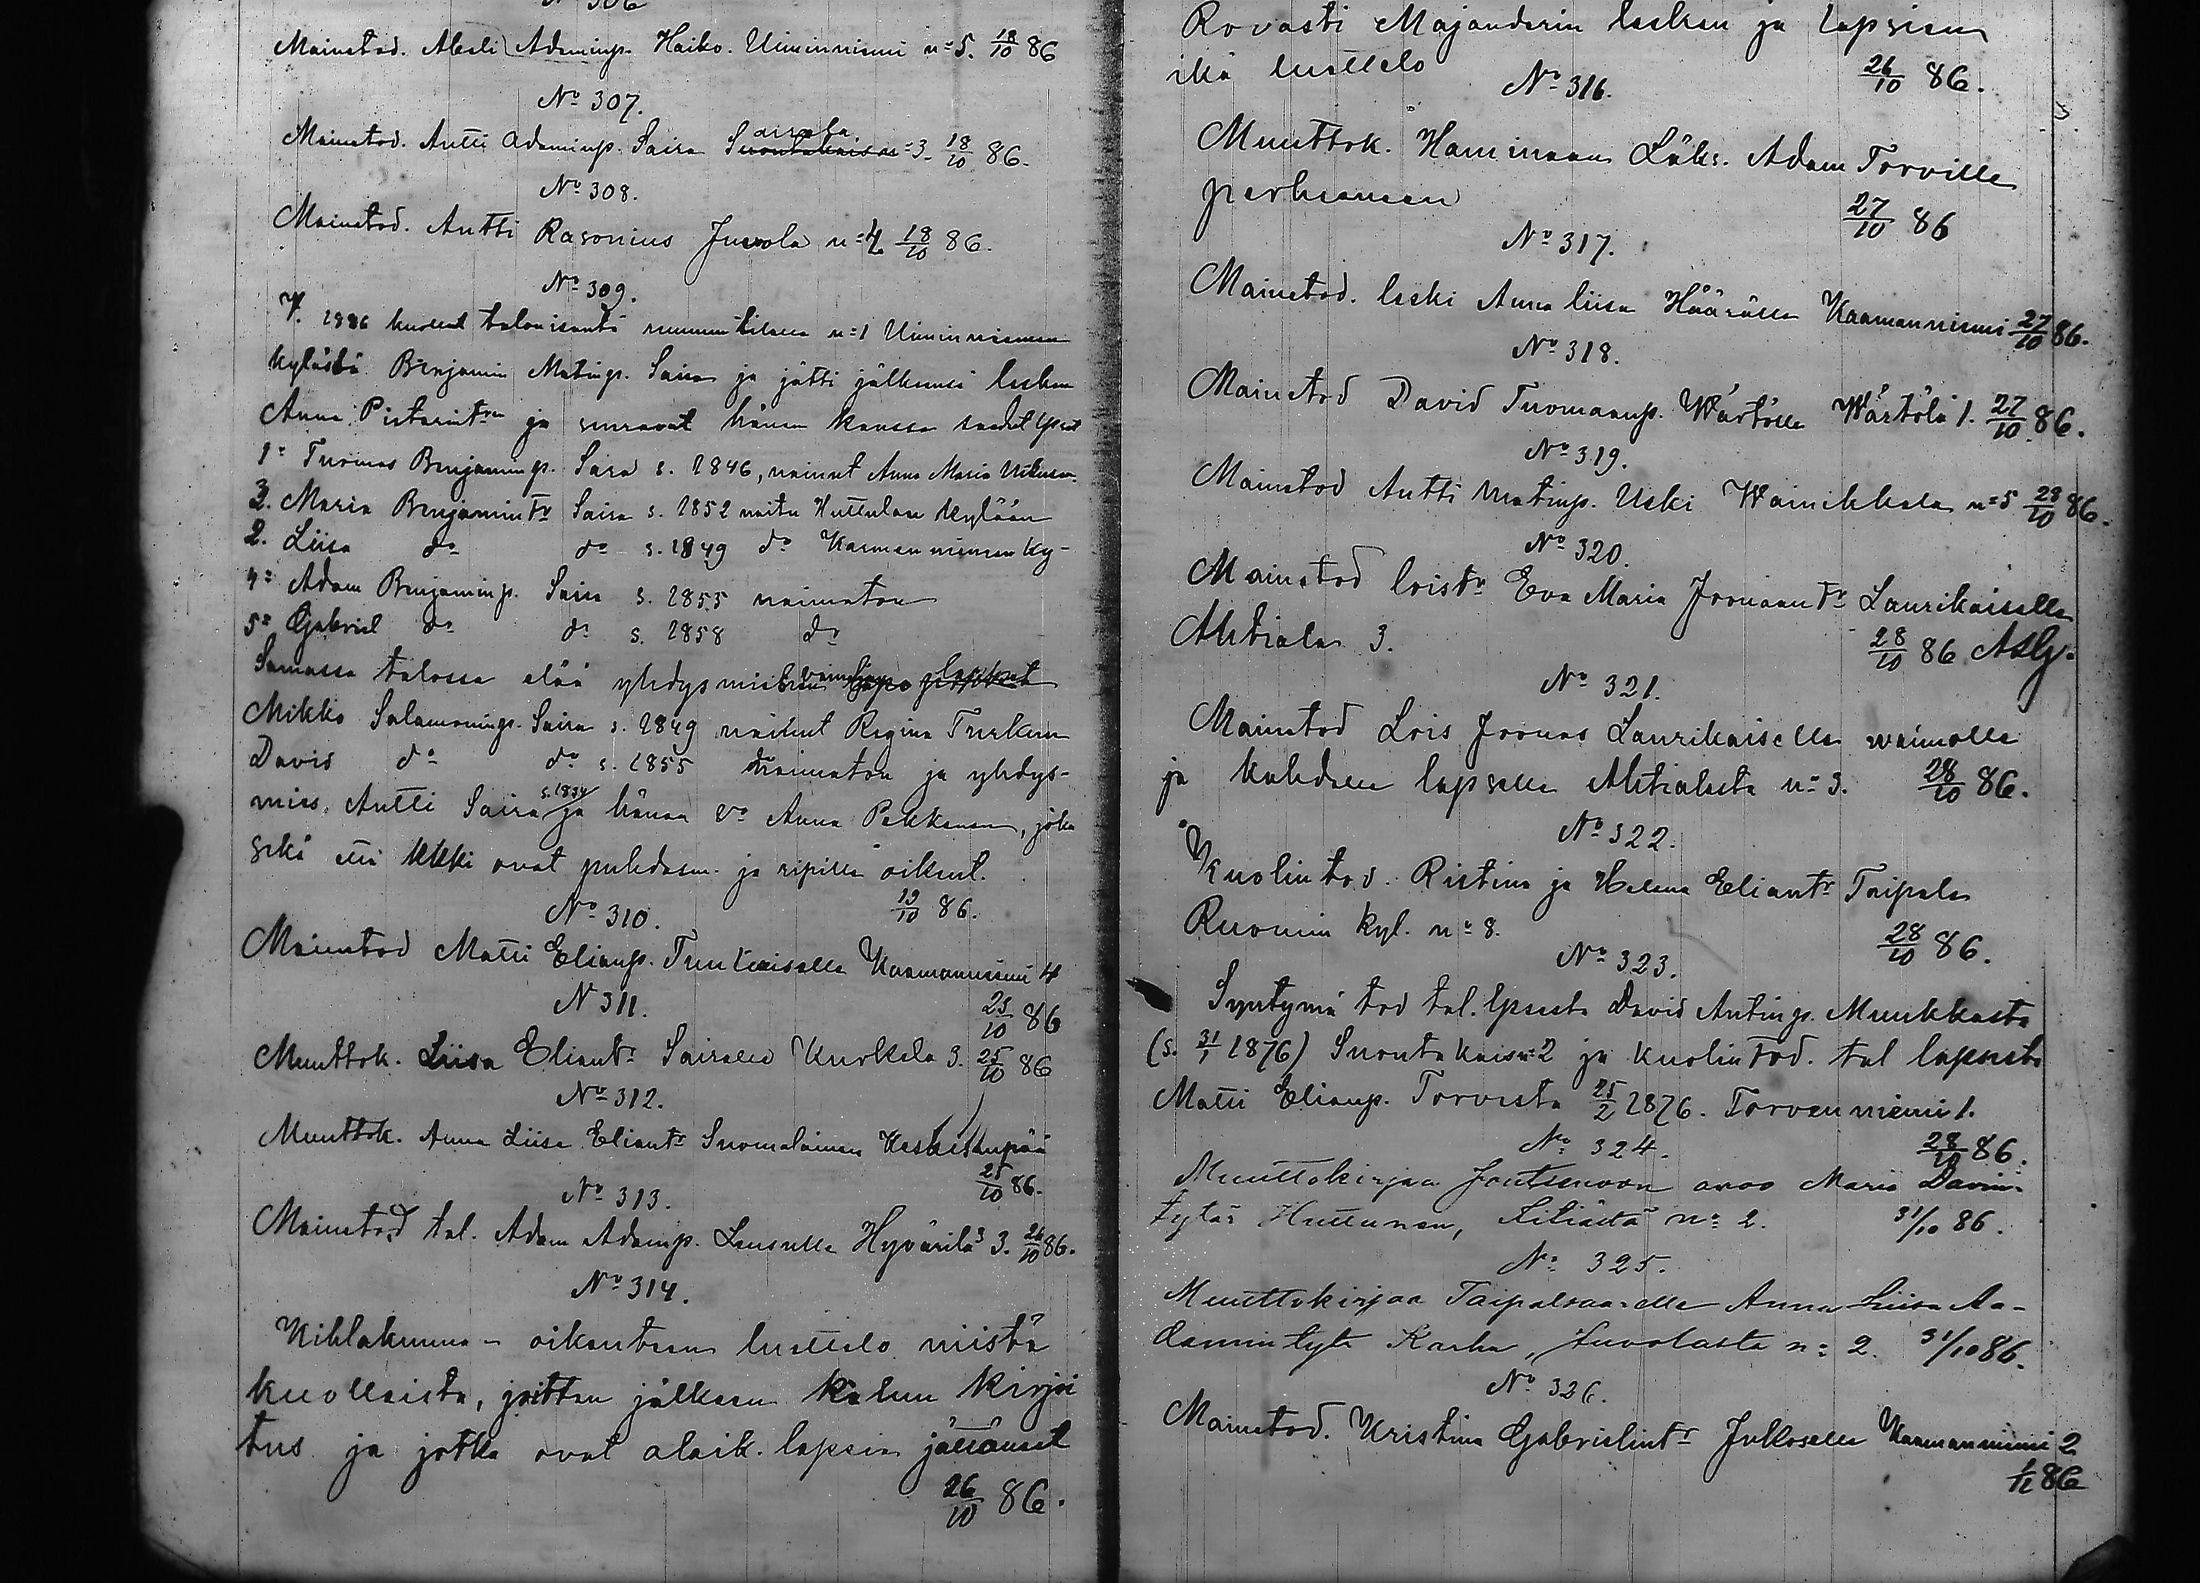 No 306
Mainetod. Abeli Adaminp. Haiko. Uiminniemi n:5. 18/10 86
No 307.
Mainetod. Antti Adaminp. Saira Suontakaisn:3. 18/10 86.
No 308.
Mainetod. Antti Rasonius Juvola n:4 18/10 86.
No 309.
V. 1886 kuollut talonisäntä tilalla n:1 Uiminniemen
kylästä Benjamin Matinp. Saira ja jätti jälkeensä lesken
Anna Pietarintr. ja seuraavat hänen kanssa
1: Tuomas Benjaminp. Saira s. 1846, nainut Anna Maria
3. Maria Benjamintr Saira s. 1852 naitu Huttulan kylään
2. Liisa do do s. 1849 do Kaarmanniemen ky-
4: Adam Benjaminp. Saira s. 1855 naimaton
5: Gabriel do do s. 1858 do
Samassa talossa elää yhdysmiehen
Mikko Salamoninp. Saira s. 1849 nainut Regina Turkun
David do do s. 1855 naimaton ja yhdys-
mies Antti Saira s. 1834 ja hänen vo Anna Pekkanen, jotka
sekä että kukki ovat puhdasm. ja ripillä oikeut.
19/10 86.
No 310.
Mainetod Matti Elianp. Tuuliaiselle Kaarmanniemi 4
23/10 86
N 311.
Muuttok. Liisa Eliantr. Sairalle Kurkela 3. 25/10 86
No 312.
Muuttok. Anna Liisa Eliantr Suomalainen
25/10 86.
No 313.
Mainetod tal. Adam Adamp. Hyvärilä 3. 26/10 86.
No 314.
Kihlakunna- oikeuteen luettelo niistä
kuolleista, joitten jälkeen kalun kirjoi
tus ja jotka ovat alaik. lapsia jättäneet
26/10 86.
Rovasti Majanderin lesken ja lapsien
ikä luettelo 26/10 86.
No 316.
Muuttok. Haminaan Adam Torville
perheineen 27/10 86
No 317.
Mainetod. leski Anna Liisa Häärälle Kaarmanniemi 27/10 86.
No 318.
Mainetod David Tuomaanp. Wärtölle Wärtölä 1. 27/10 86.
No 319.
Mainetod Antti Matinp. Uski Wainikkala n:5 28/10 86.
No 320.
Mainetod loistr Eva Maria Joonaantr Laurikaiselle
Ahtiala 3. 28/10 86
No 321.
Mainetod Lois Joonas Laurikaiselle waimolle
ja kahdelle lapselle Ahtialasta n: 3. 28/10 86.
No 322.
Kuolintod. Ristina ja Helena Eliantr Taipale
Ruomin kyl. n: 8. 28/10 86.
No 323.
Syntymä tod tal. lpsesta David Antinp. Muukkasta
(s. 31/1 1876) Suontakais n:2 ja kuolintod. tal lapsesta
Matti Elianp. Torvesta 25/2 1876. Torvenniemi 1.
28/10 86.
No 324.
Muuttokirjaa Joutsenoon Maria Davin-
tytär Huttunen, n: 2. 31/10 86.
No 325.
Muuttokirjaa Taipalsaarelle Anna Liisa Aa-
damintyt. Karhu, Juvolasta n: 2. 31/10 86.
No 326.
Mainetod. Kristina Gabrielintr Julkoselle Kaarmanniemi 2
86